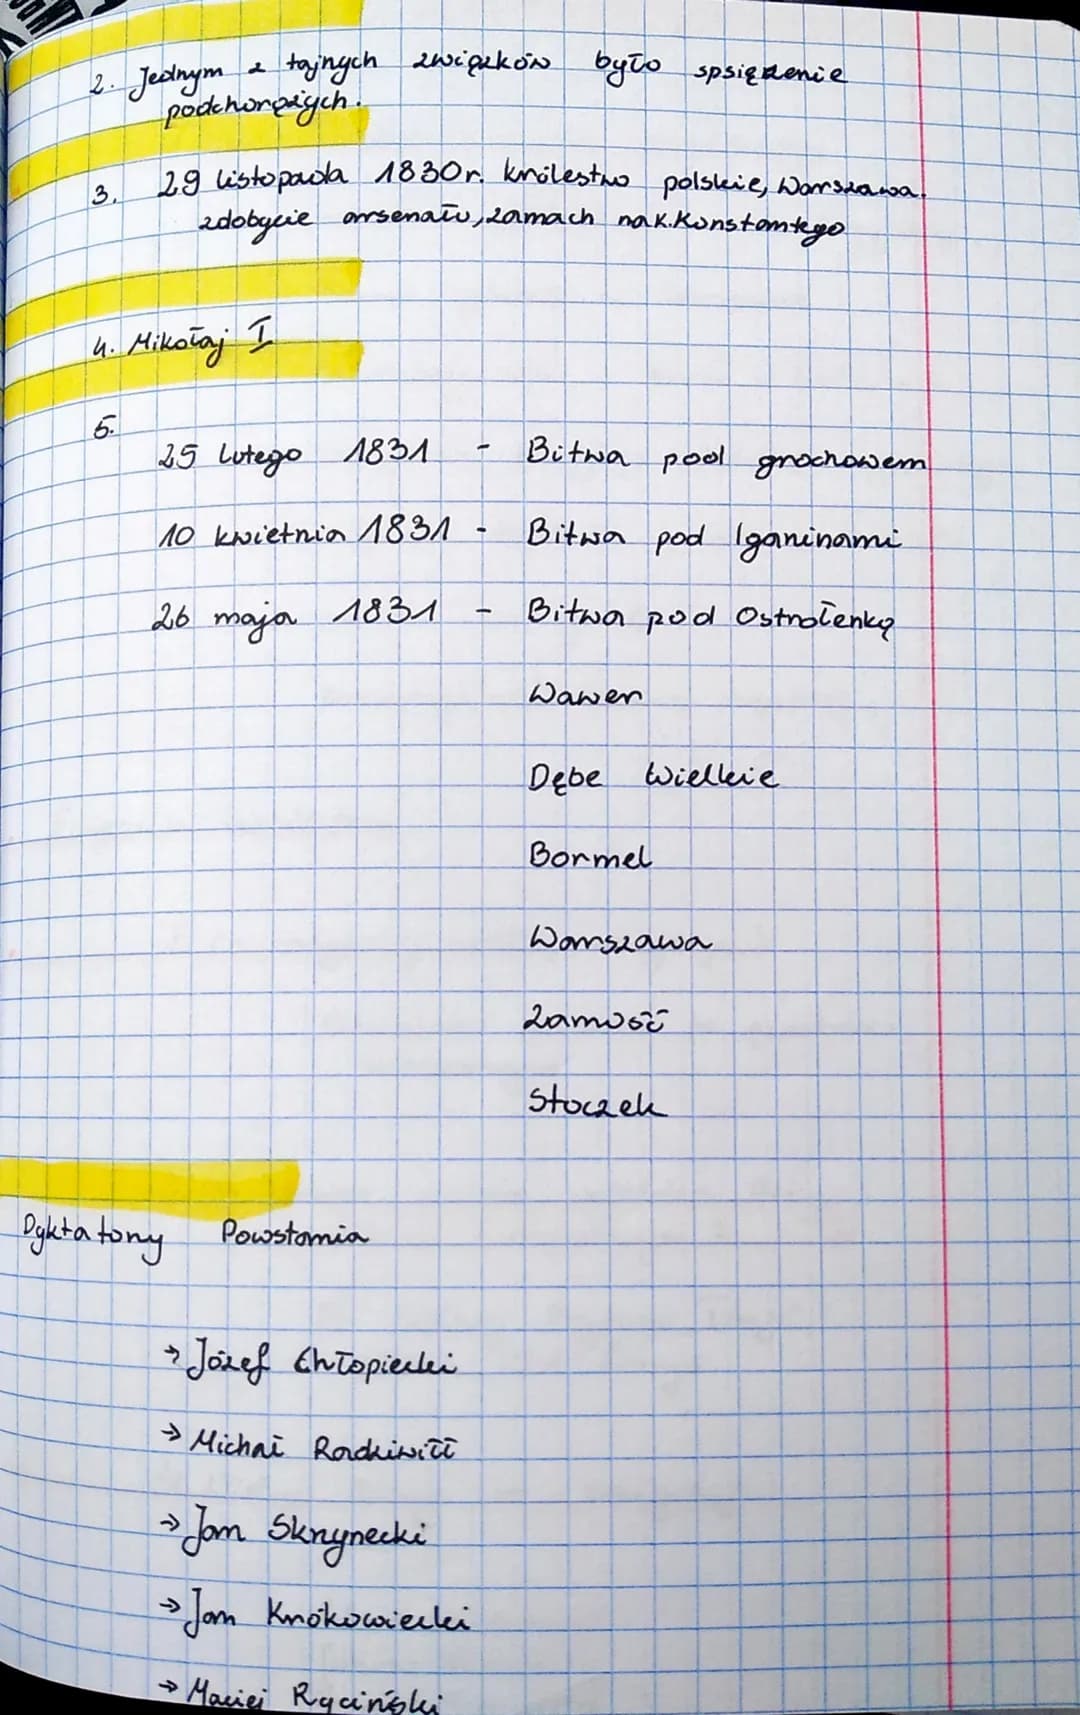 2. Jednym z tajnych związków było spsiężenie
podchorążych.
3. 29 listopada 1830r. królestwo polskie, Warszawa.
zdobycie arsenału, zamach na k. Konstantego
4. Mikołaj I
5.
25 lutego 1831 - Bitwa pod grochowem
10 kwietnia 1831 - Bitwa pod Iganinami
26 maja 1831 - Bitwa pod Ostrołenką
Wawer
Dębe Wielkie
Bormel
Warszawa
Zamość
Stoczek
Dyktatorzy Powstania
→ Józef Chłopicki
→ Michał Radziwiłł
→ Jan Skrzynecki
→ Jan Krókowiecki
→ Maciej Ryciński